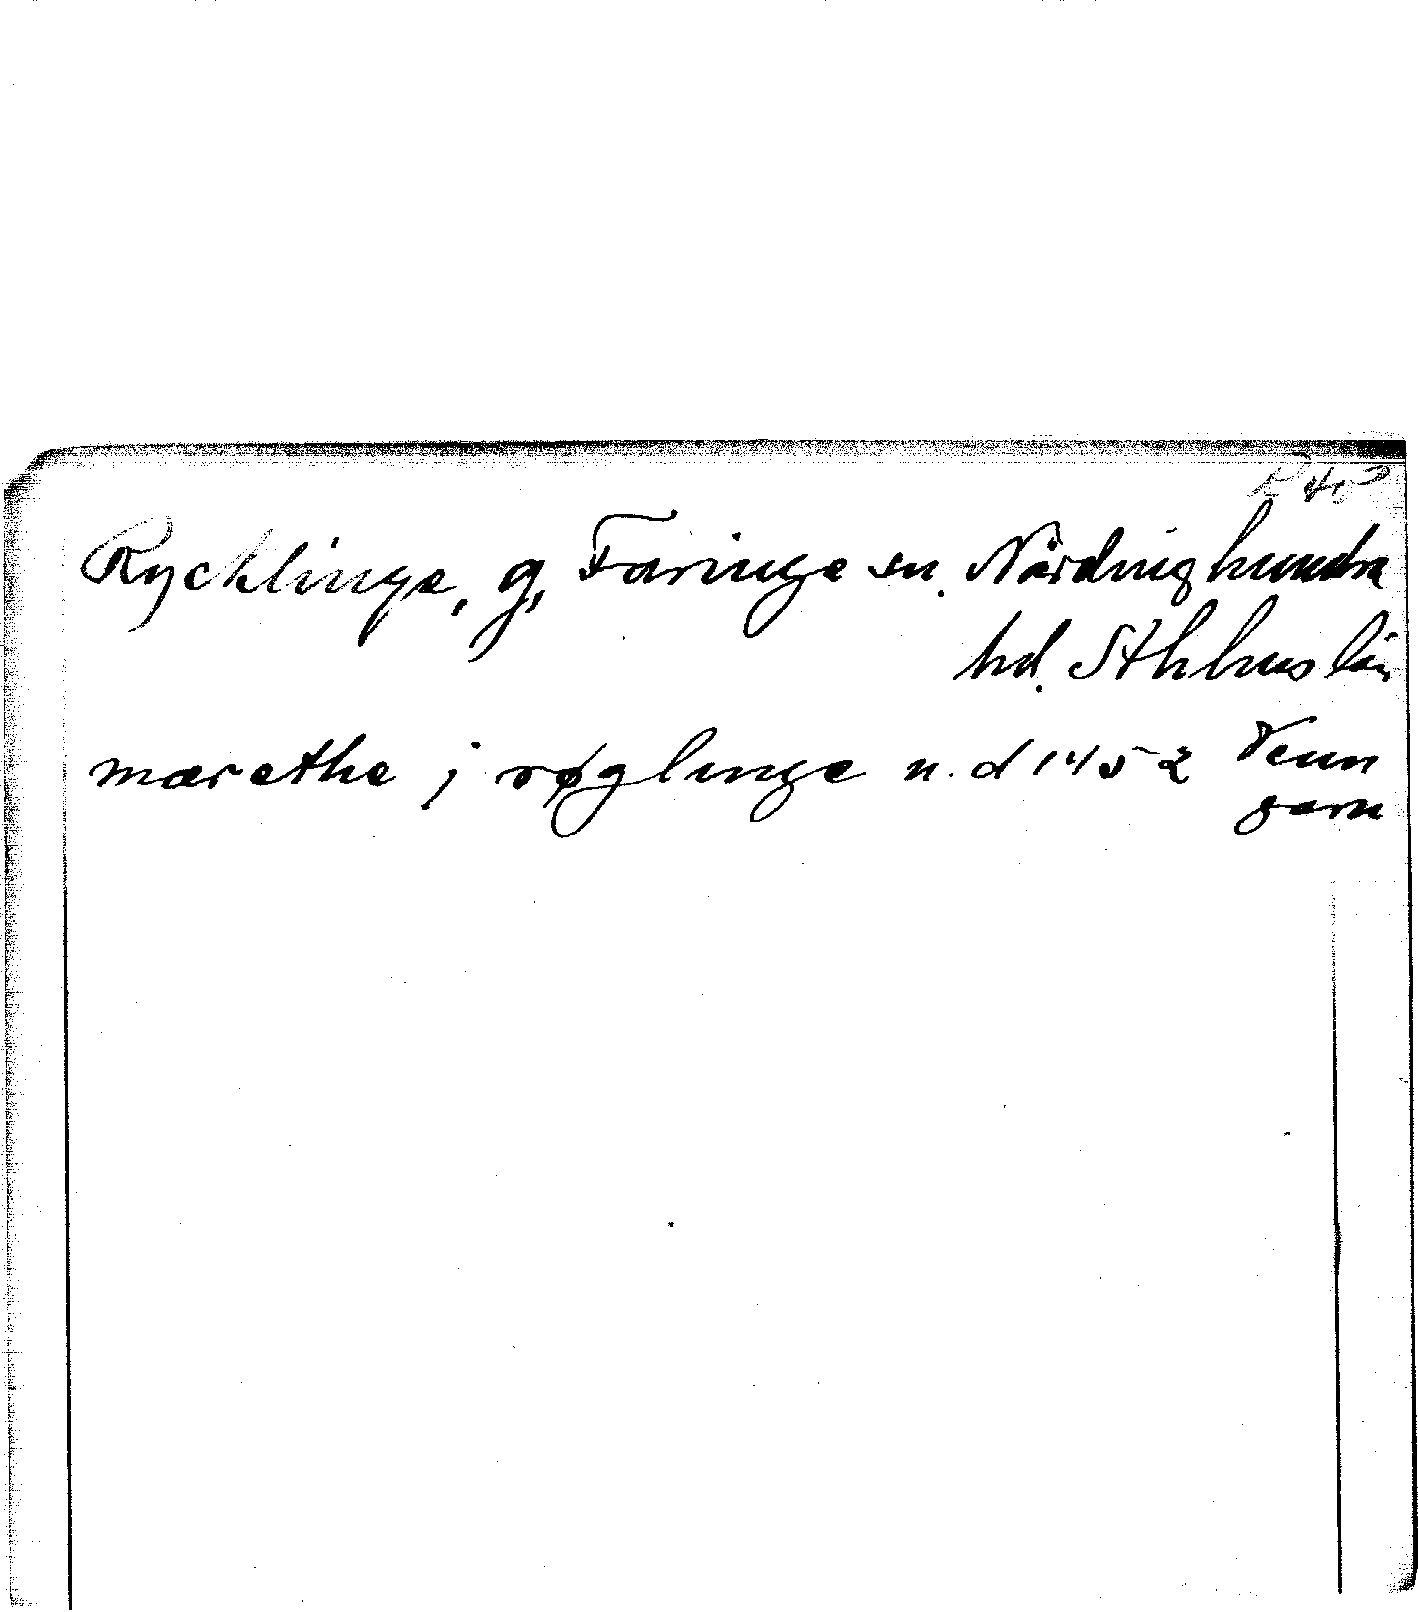 Rycklinge, g, Faringe sn. Närdinghundra
hd. Sthlms län
marethe j røglinge n.d 1452 Venn
garn